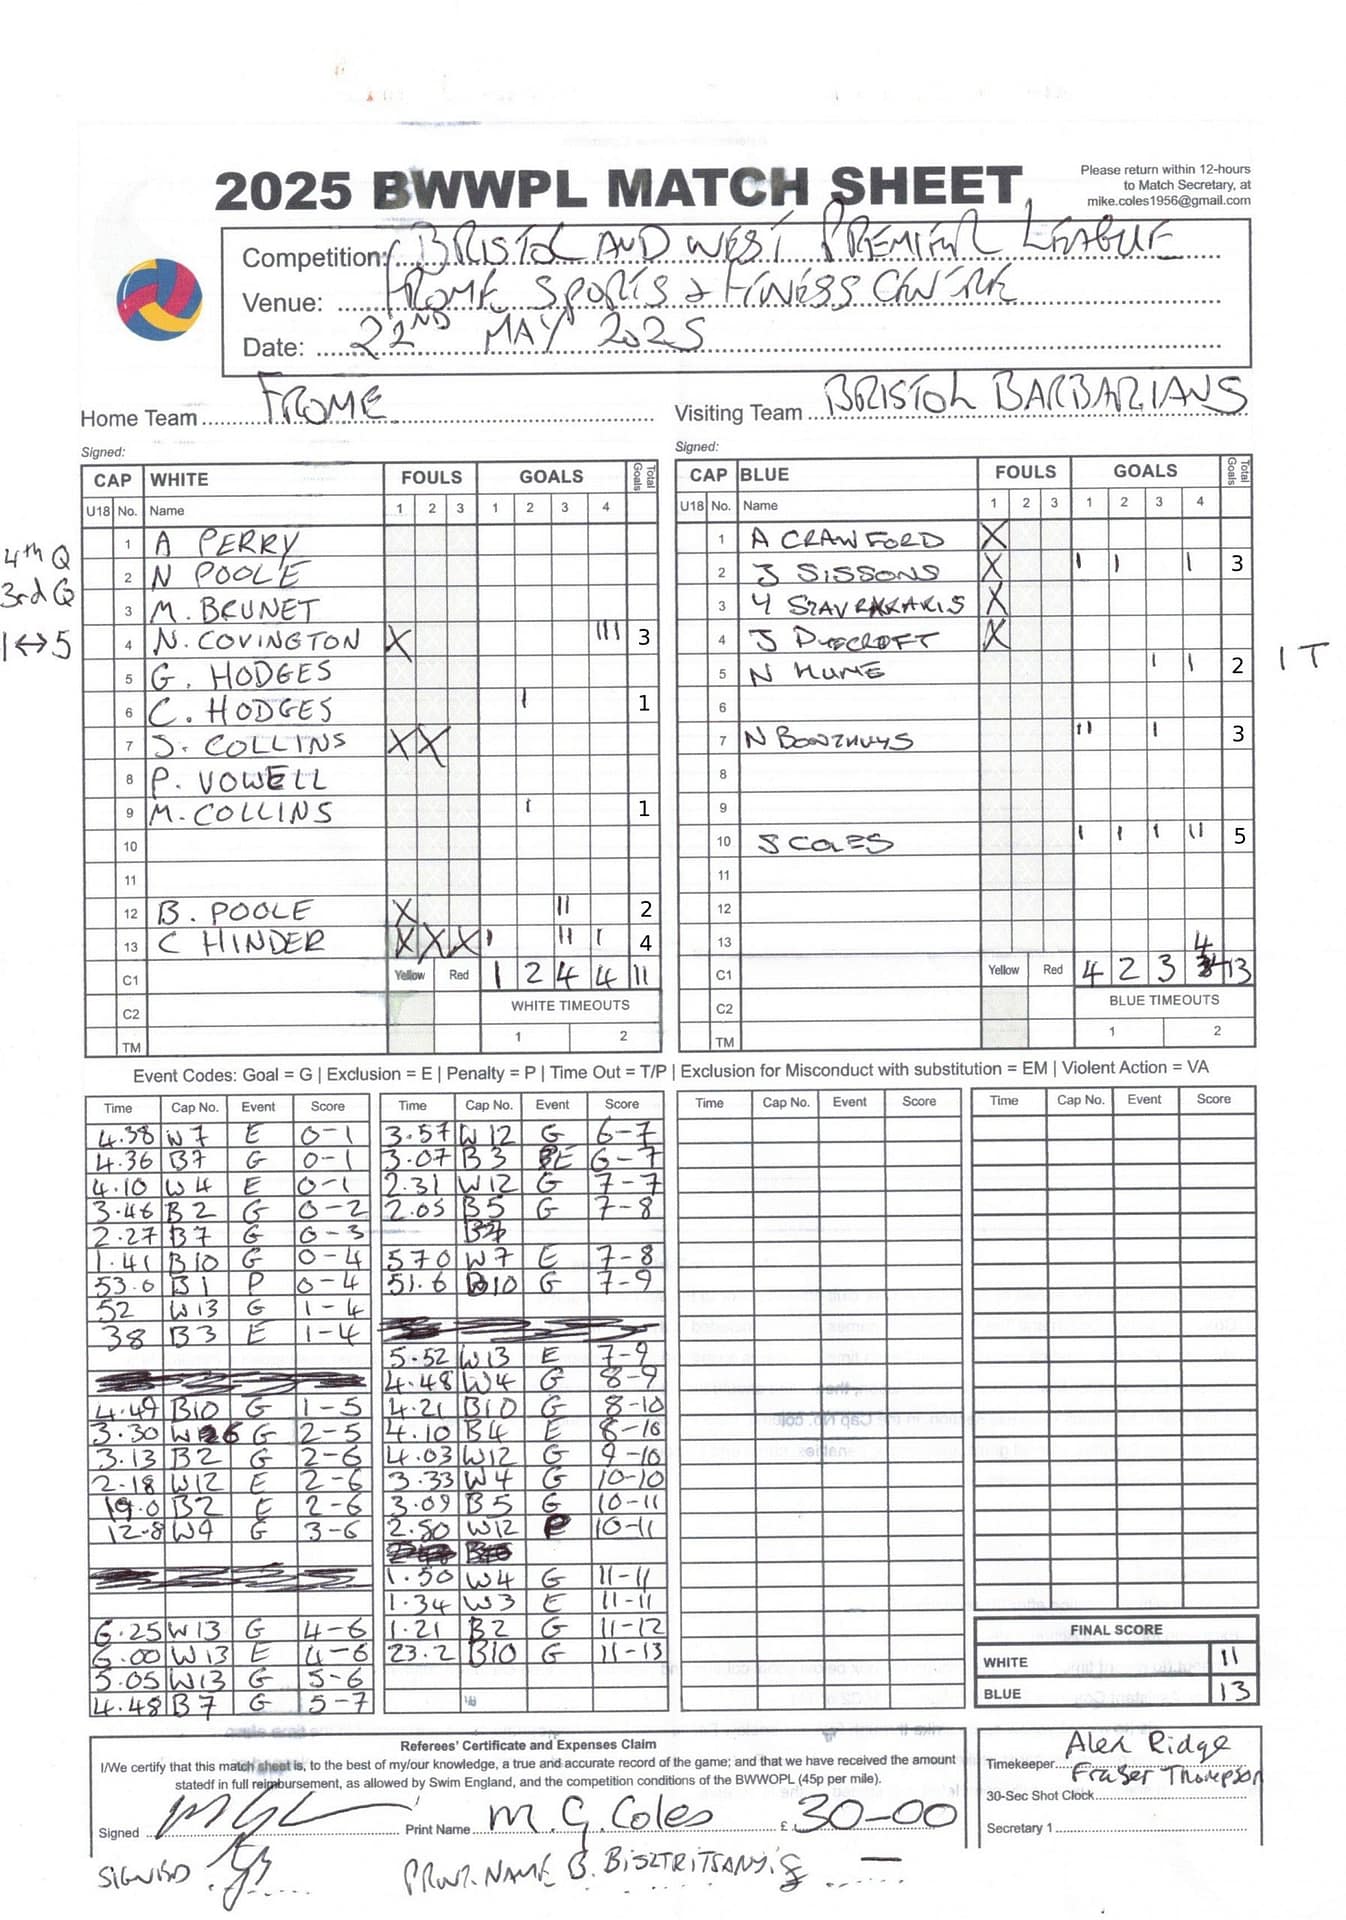 2025 BWWPL MATCH SHEET
Please return within 12-hours
to Match Secretary, at
mike.coles1956@gmail.com
Competition: BRISTOL AND WEST PREMIER LEAGUE
Venue: FROME SPORTS & FITNESS CENTRE
Date: 22ND MAY 2025
Home Team FROME
Visiting Team BRISTOL BARBARIANS
Signed:
Signed:
CAP WHITE FOULS GOALS Total Goals
U18 No. Name 1 2 3 1 2 3 4
1 A PERRY
4th Q
2 N POOLE
3rd Q
3 M. BRUNET
1↔5
4 N. COVINGTON X III 3
5 G. HODGES
6 C. HODGES I 1
7 S. COLLINS X X
8 P. VOWELL
9 M. COLLINS I 1
10
11
12 B. POOLE X II 2
13 C HINDER X X X I II I 4
C1 Yellow Red 1 2 4 4 11
C2 WHITE TIMEOUTS
TM 1 2
CAP BLUE FOULS GOALS Total Goals
U18 No. Name 1 2 3 1 2 3 4
1 A CRAWFORD X
2 J SISSONS X I I I 3
3 Y STAVRAKAKIS X
4 J X
5 N HUME I I 2 1 T
6
7 N BONZHUYS II I 3
8
9
10 S COLES I I I II 5
11
12
13 4
C1 Yellow Red 4 2 3 13
C2 BLUE TIMEOUTS
TM 1 2
Event Codes: Goal = G | Exclusion = E | Penalty = P | Time Out = T/P | Exclusion for Misconduct with substitution = EM | Violent Action = VA
Time Cap No. Event Score
4.38 W7 E 0-1
4.36 B7 G 0-1
4.10 W4 E 0-1
3.46 B2 G 0-2
2.27 B7 G 0-3
1.41 B10 G 0-4
53.0 B1 P 0-4
52 W13 G 1-4
38 B3 E 1-4
4.49 B10 G 1-5
3.30 W6 G 2-5
3.13 B2 G 2-6
2.18 W12 E 2-6
19.0 B2 E 2-6
12.8 W9 G 3-6
6.25 W13 G 4-6
6.00 W13 E 4-6
5.05 W13 G 5-6
4.48 B7 G 5-7
Time Cap No. Event Score
3.57 W12 G 6-7
3.07 B3 E 6-7
2.31 W12 G 7-7
2.05 B5 G 7-8
570 W7 E 7-8
51.6 B10 G 7-9
5.52 W13 E 7-9
4.48 W4 G 8-9
4.21 B10 G 8-10
4.10 B4 E 8-10
4.03 W12 G 9-10
3.33 W4 G 10-10
3.09 B5 G 10-11
2.50 W12 P 10-11
1.50 W4 G 11-11
1.34 W3 E 11-11
1.21 B2 G 11-12
23.2 B10 G 11-13
Time Cap No. Event Score
Time Cap No. Event Score
FINAL SCORE
WHITE 11
BLUE 13
Referees' Certificate and Expenses Claim
I/We certify that this match sheet is, to the best of my/our knowledge, a true and accurate record of the game; and that we have received the amount
statedf in full reimbursement, as allowed by Swim England, and the competition conditions of the BWWOPL (45p per mile).
Signed Print Name M. G. Coles £ 30-00
SIGNED PRINT NAME B. BISZTRITSANY. £ —
Alex Ridge
Timekeeper Fraser Thompson
30-Sec Shot Clock
Secretary 1